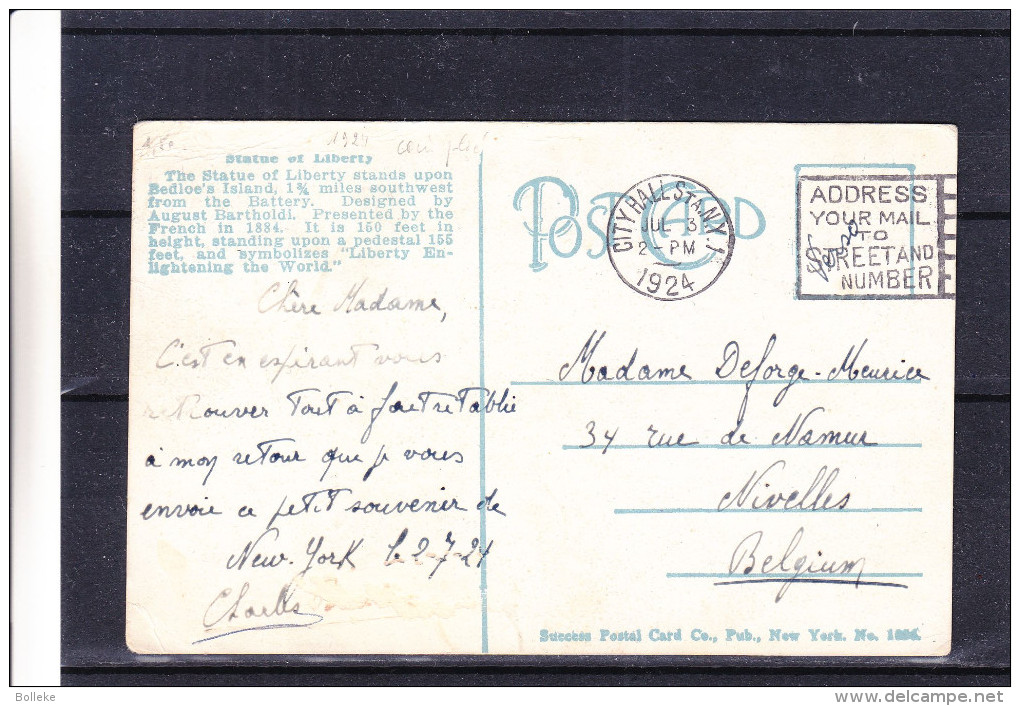 1924 coin plié
Statue of Liberty
The Statue of Liberty stands upon
Bedloe's Island, 1¾ miles southwest
from the Battery. Designed by
August Bartholdi. Presented by the
French in 1884. It is 150 feet in
height, standing upon a pedestal 155
feet, and symbolizes "Liberty En-
lightening the World."
Chère Madame,
C'est en espérant vous
retrouver tout à fait rétablie
à mon retour que je vous
envoie ce petit souvenir de
New-York le 2-7-24
Charles
POST CARD
CITY HALL STA. N.Y.
JUL 3
2-PM
1924
ADDRESS
YOUR MAIL
TO
STREET AND
NUMBER
Madame Deforge-Meurice
34 rue de Namur
Nivelles
Belgium
Success Postal Card Co., Pub., New York. No.
Bolleke
delcampe.net